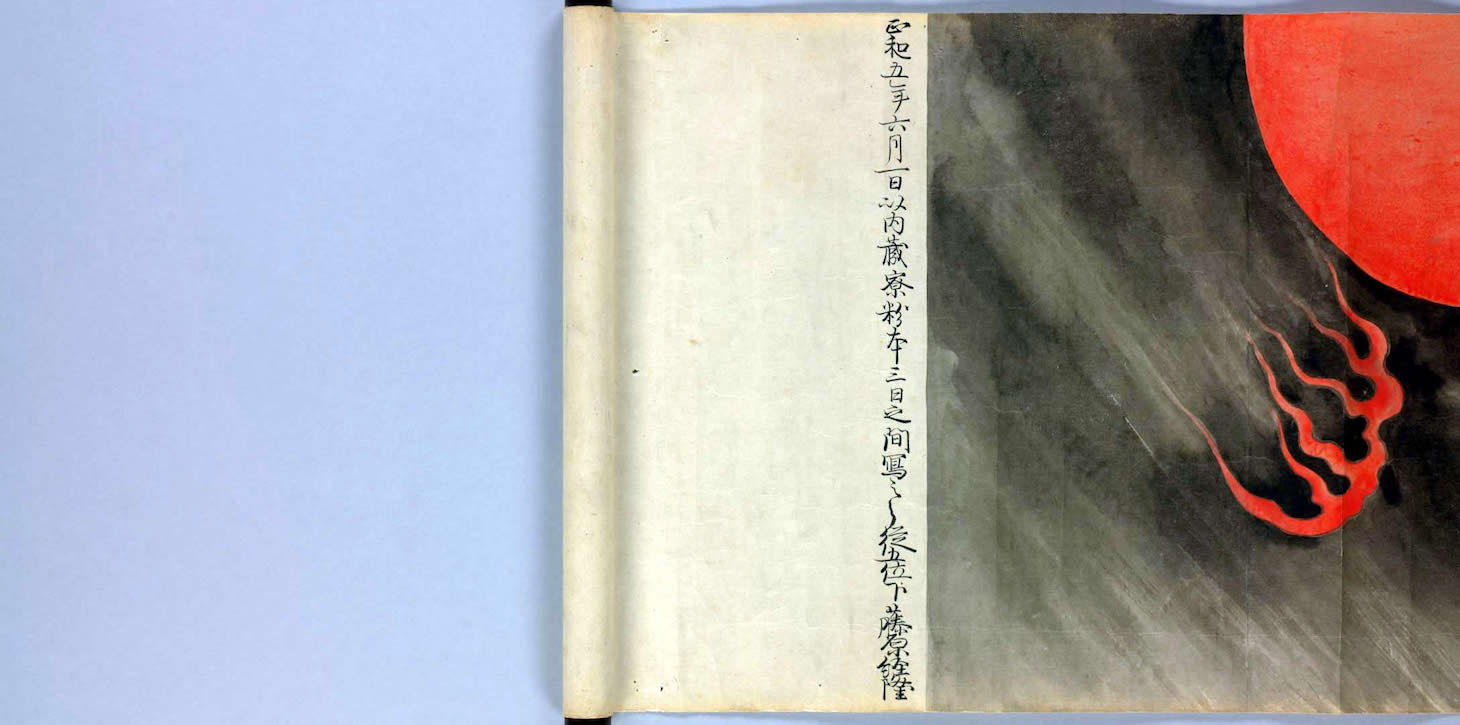 正和五年六月一日以内蔵寮粉本三日之間寫之了従五位下藤原経隆